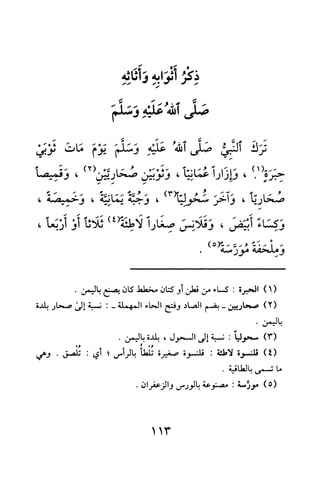 ذِكْرُ أَثْوَابِهِ وَأَثَاثِهِ
صَلَّى ٱللهُ عَلَيْهِ وَسَلَّمَ
تَرَكَ ٱلنَّبِيُّ صَلَّى ٱللهُ عَلَيْهِ وَسَلَّمَ يَوْمَ مَاتَ ثَوْبَيْ
حِبَرَةٍ(١) ، وَإِزَاراً عُمَانِيّاً ، وَثَوْبَيْنِ صُحَارِيَّيْنِ(٢) ، وَقَمِيصاً
صُحَارِيّاً ، وَآخَرَ سُّحُولِيّاً(٣) ، وَجُبَّةً يَمَانِيَّةً ، وَخَمِيصَةً ،
وَكِسَاءً أَبْيَضَ ، وَقَلَانِسَ صِغَاراً لَاطِئَةً(٤) ثَلَاثاً أَوْ أَرْبَعاً ،
وَمِلْحَفَةً مُوَرَّسَةً(٥) .
(١) الحبرة : كساء من قطن أو كتان مخطط كان يصنع باليمن .
(٢) صحاريين ـ بضم الصاد وفتح الحاء المهملة ـ : نسبة إلىٰ صحار بلدة
باليمن .
(٣) سحولياً : نسبة إلى السحول ، بلدة باليمن .
(٤) قلنسوة لاطئة : قلنسوة صغيرة تُلْطأُ بالرأس ؛ أي : تُلْصق . وهي
ما تسمى بالطاقية .
(٥) مورَّسة : مصبوغة بالورس والزعفران .
١١٣